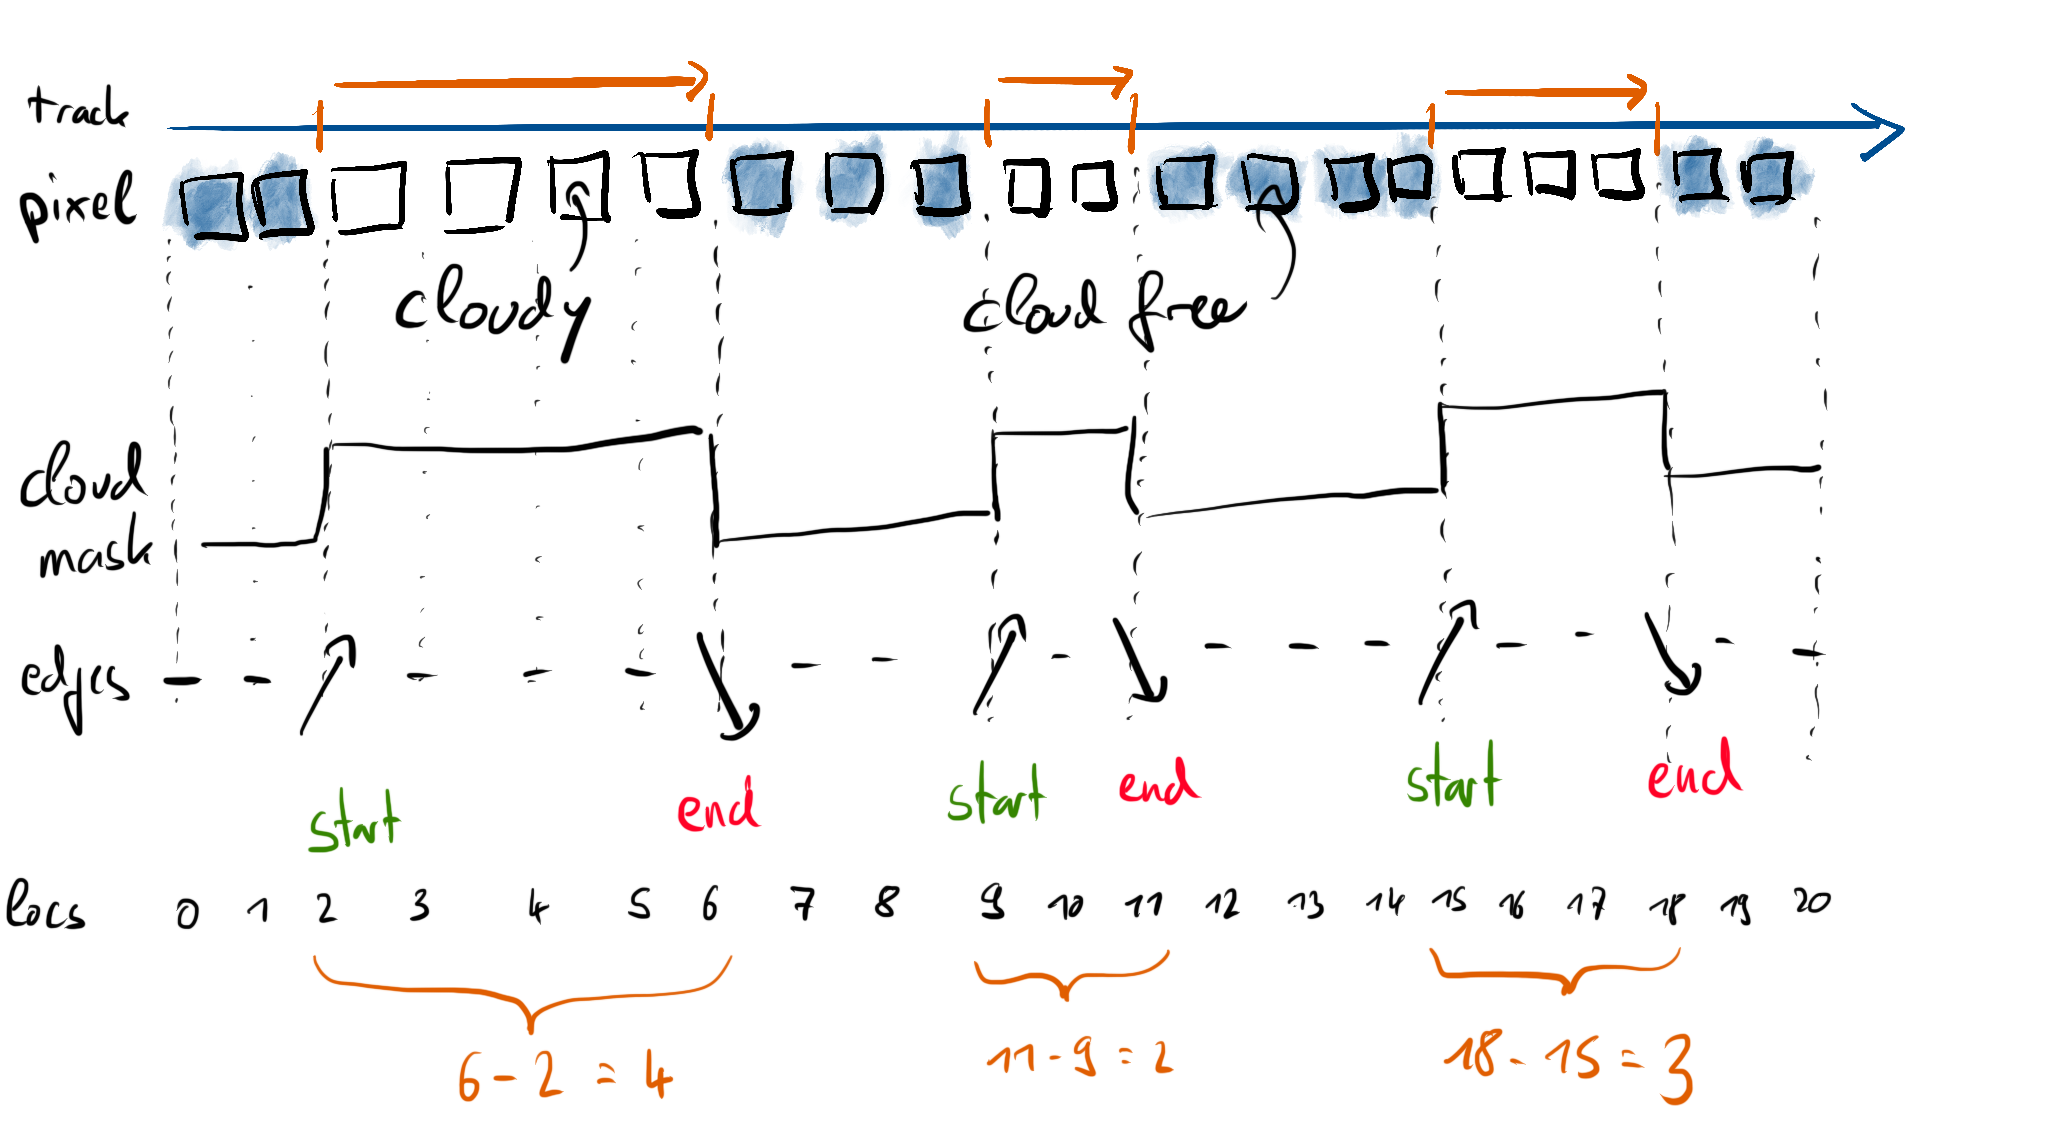 track
pixel
cloudy
cloud free
cloud
mask
edges
start end start end start end
locs 0 1 2 3 4 5 6 7 8 9 10 11 12 13 14 15 16 17 18 19 20
6-2 = 4 11-9 = 2 18-15 = 3